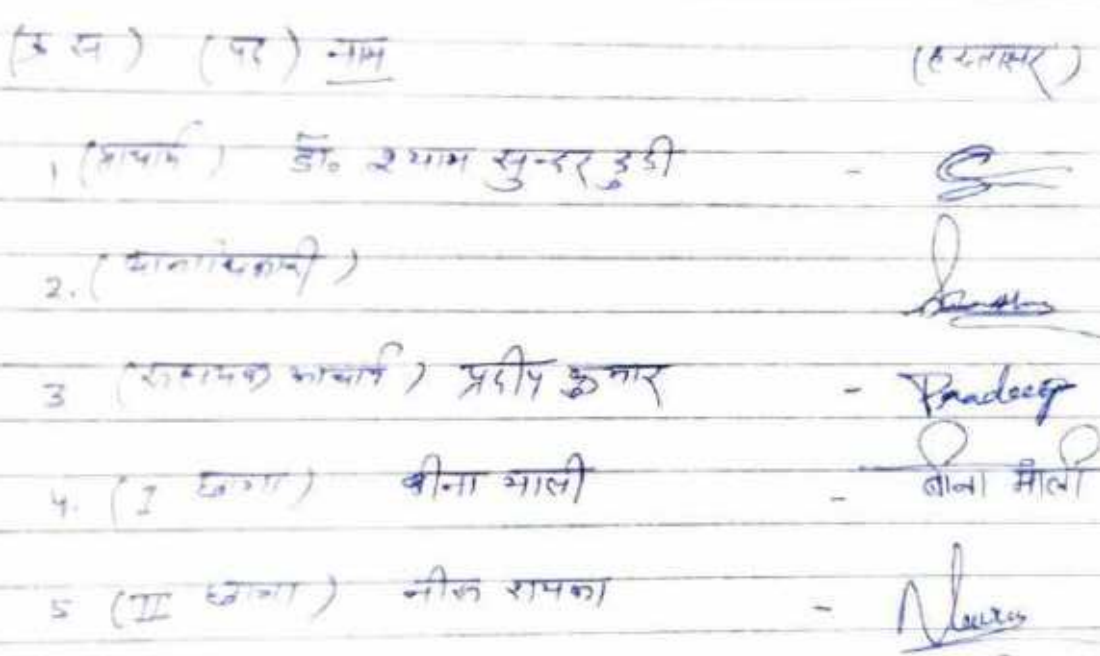 (क्र स) (पद) नाम (हस्ताक्षर)
1 (प्राचार्य) डॉ. श्याम सुन्दर डुडी -
2. (थानाधिकारी)
3 (सहायक आचार्य) प्रदीप कुमार - Pradeep
4. (I छात्रा) बीना माली - बीना माली
5 (II छात्रा) नीरू रायका -